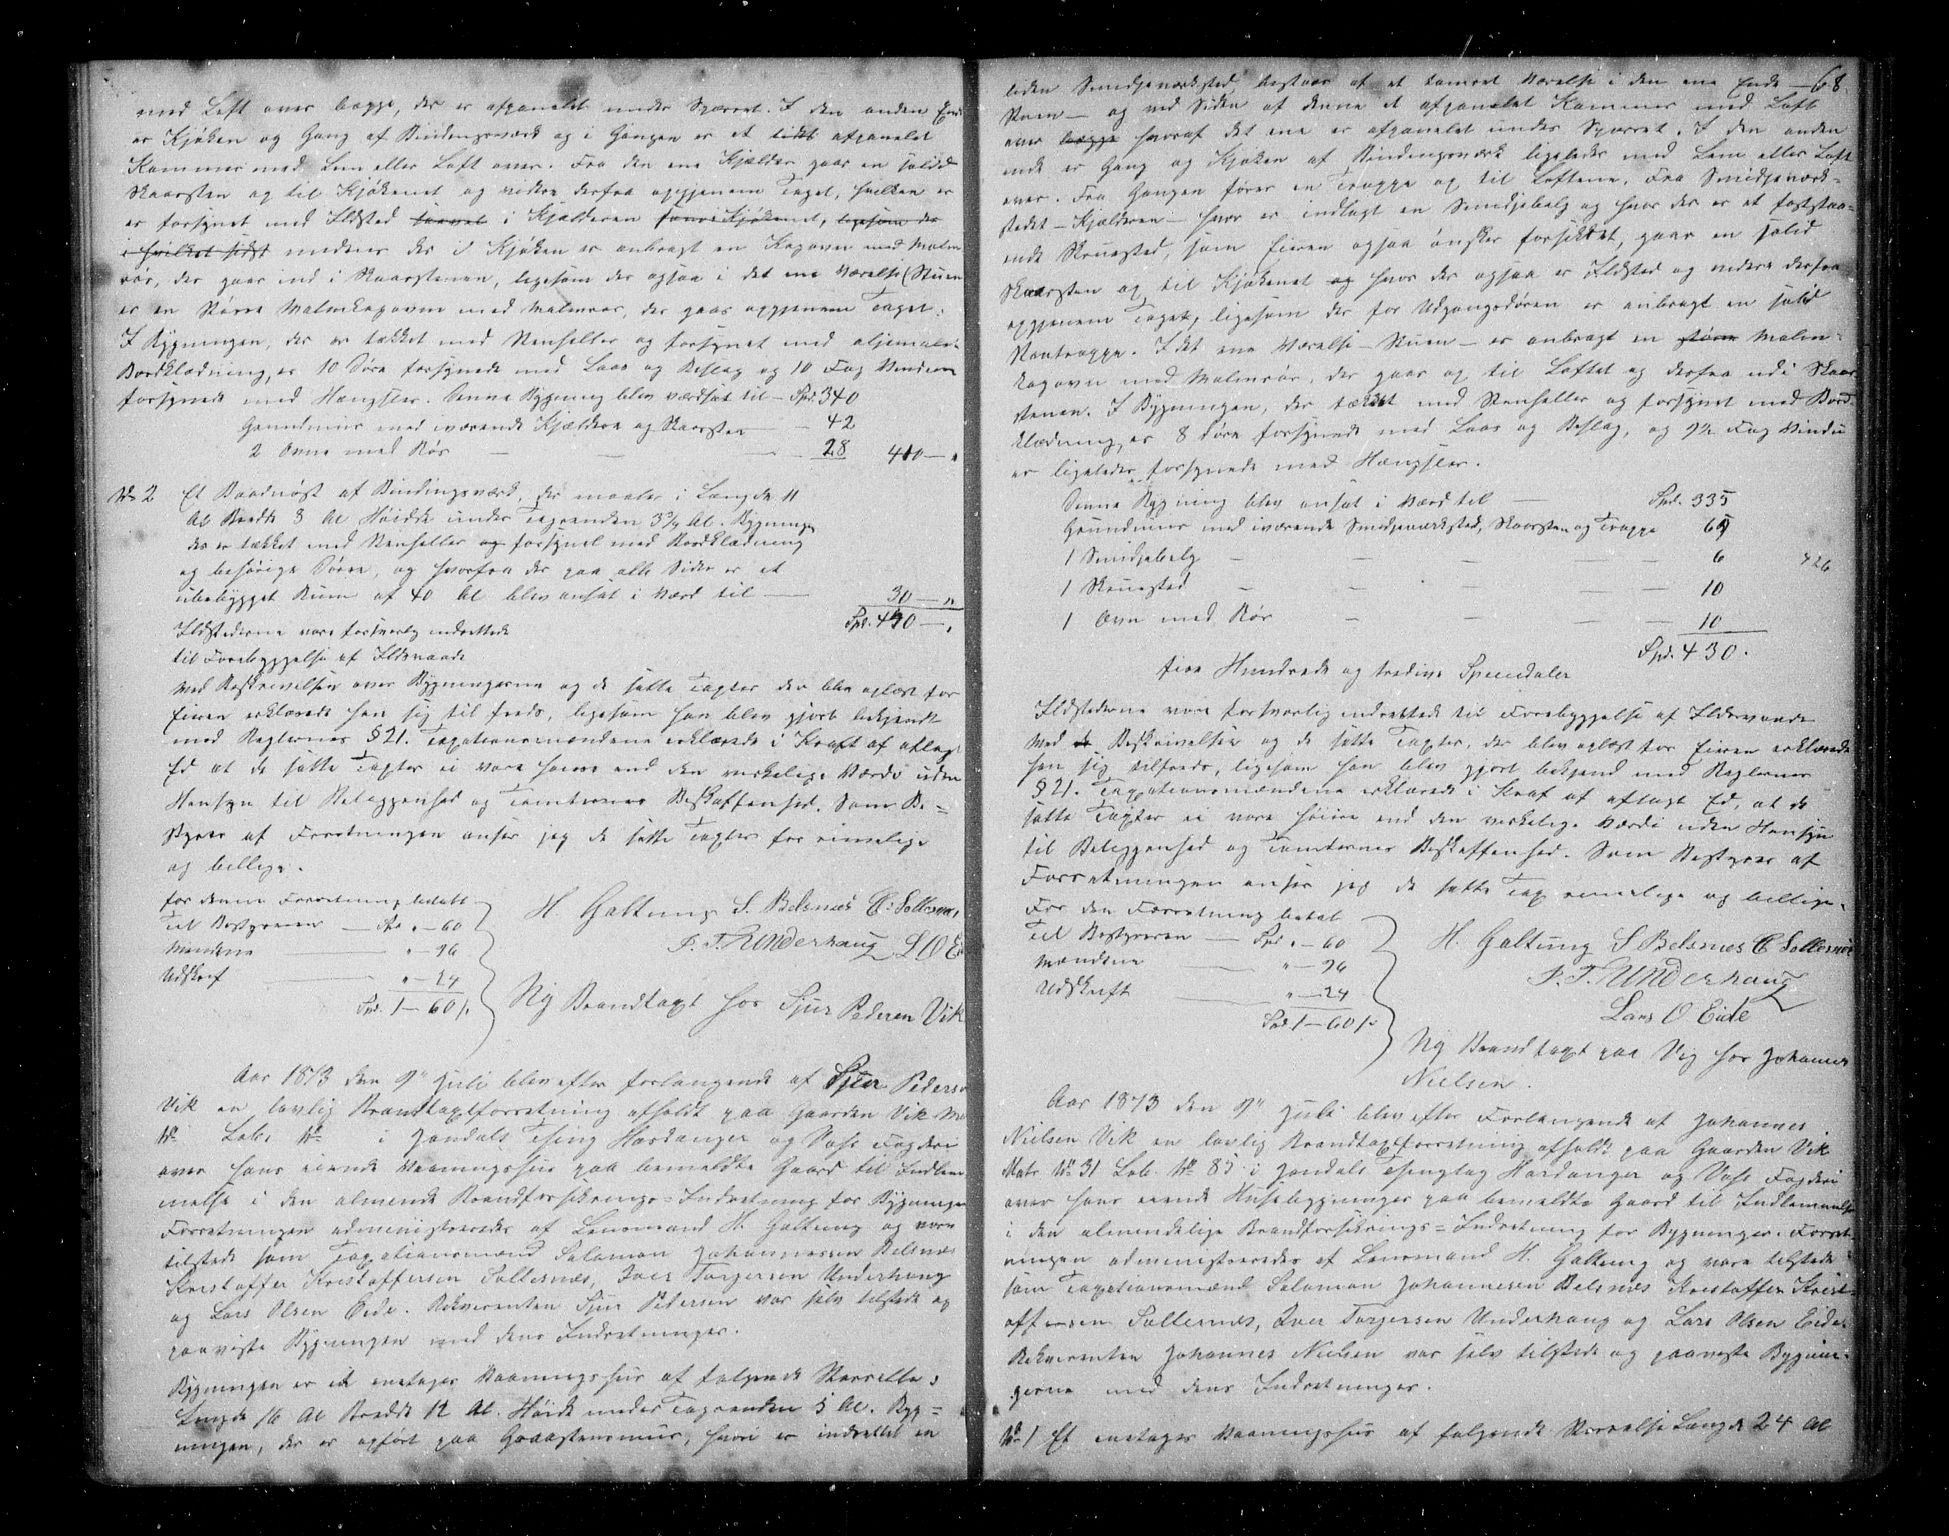 med Loft over begge, der er afpanelet under Sperret. I den anden Ende
er Kjøken og Gang af Bindingsværk og i Gangen er et lidet afpanelet
Kammer med Lem eller Loft over. Fra den ene Kjelder gaar en solid
Skaarsten op til Kjøkenet og videre derfra opgjenem Taget, hvilken er
er forsynet med Ildsted saavel i Kjælderen som i Kjøkenet, ligesom der
i hvilket sidst medens der i Kjøken er anbragt en Kogovn med Malm
rør, der gaar ind i Skaarstenen, ligesom der ogsaa i det ene Værelse (Stuen
er en større Malmkogovn med Malmrør, der gaar opgjenem Taget.
I Bygningen, der er tækket med Stenheller og forsynet med oljemalet
Bordklædning, er 10 Døre forsynede med Laas og Beslag og 10 Fag Vinduer
forsynede med Hængsler. Denne Bygning blev værdsat til – Spd. 340
Grundmur med iværende Kjældere og Skaarsten — 42
2 Ovne med Rør — — 28 410 — "
No 2 Et Baadnøst af Bindingsværk, der maaler i Længde 11
Al. Bredde 8 Al. Høide under Tagranden 3 3/4 Al. Bygningen
der er tækket med Stenheller og forsynet med Bordklædning
og behørige Døre, og hvorfra der paa alle Sider er et
ubebygget Rum af 40 Al. blev ansat i Værd til — 30 — "
Ildstederne vare forsvarlig indrettede Spd. 440 — "
til Forebyggelse af Ildsvaade
Med Beskrivelsen over Bygningerne og de satte Taxter der blev oplæst for
Eieren erklærede han sig til freds, ligesom han blev gjort bekjendt
med Reglernes § 21. Taxationsmændene erklærede i Kraft af aflagt
Ed at de satte Taxter ei vare høiere end den virkelige Værdi uden
Hensyn til Beliggenhed og Tomternes Beskaffenhed. Som Be-
styrer af Forretningen anser jeg de satte Taxter for rimelige
og billige.
For denne Forretning betalt
Til Bestyreren — Spd. " – 60 H. Galtung S. Belsnæs C: Sollesnæs
Mændene — " – 96 I. T. Underhaug L O Eide
Udskrift — " – 24
Spd. 1 – 60 /. Ny Brandtaxt hos Sjur Pedersen Vik
Aar 1873 den 9de Juli blev efter forlangende af Sjur Pedersen
Vik en lovlig Brandtaxtforretning afholdt paa Gaarden Vik Matr
No Løbe No i Jondals Thing Hardanger og Voss Fogderi
over hans eiende Vaaningshus paa bemeldte Gaard til Indlem
melse i den almende Brandforsikrings-Indretning for Bygninger
Forretningen administreredes af Lensmand H. Galtung og vare
tilstede som Taxationsmænd Salomon Johannessen Belsnæs
Kristoffer Kristoffersen Sollesnæs, Iver Torgersen Underhaug
og Lars Olsen Eide. Rekvirenten Sjur Pedersen var selv tilstede og
paaviste Bygningen med dens Indretninger.
Bygningen er et enetages Vaaningshus af følgende Størrelse:
Længde 16 Al. Bredde 12 Al. Høide under Tagranden 5 Al. Byg=
ningen, der er opført paa Graastensmur, hvori er indrettet en
68.
liden Smidjeværksted, bestaar af et tømret Værelse i den ene Ende –
Stuen – og ved Siden af denne et afpanelet Kammer med Loft
over begge hvoraf det ene er afpanelet under Sperret. I den anden
ende er Gang og Kjøken af Bindingsværk ligeledes med Lem eller Loft
over. Fra Gangen fører en Trappe op til Loftene. Fra Smidjeværk-
stedet – Kjælderen – hvor er indlagt en Smidjebelg og hvor der er et faststaa-
ende Skruested, som Eieren ogsaa ønsker forsikret, gaar en solid
Skaarsten op til Kjøkenet og hvor der ogsaa er Ildsted og videre derfra
opgjenem Taget, ligesom der for Udgangsdøren er anbragt en solid
Stentrappe. I det ene Værelse – Stuen – er anbragt en større Malm-
kogovn med Malmrør, der gaar op til Loftet og derfra ud i Skaar
stenen. I Bygningen, der tækket med Stenheller og forsynet med Bord-
klædning, er 8 Døre forsynede med Laas og Beslag, og 9 1/2 Fag Vindu
er ligeledes forsynede med Hængsler.
Denne Bygning blev ansat i Værd til — Spd. 335
Grundmur med iværende Smidjeværksted, Skaarsten og Trappe 69
1 Smidjebelg — 6 426
1 Skruested — 10
1 Ovn med Rør — 10
Spd. 430.
fire Hundrede og tredive Speciedaler
Ildstederne vare forsvarlig indrettede til Forebyggelse af Ildsvaade
Med de Beskrivelsen og de satte Taxter, der blev oplæst for Eieren erklærede
han sig tilfreds, ligesom han blev gjort bekjend med Reglernes
§ 21. Taxationsmændene erklærede i Kraf af aflagt Ed, at de
satte Taxter ei vare høiere end den virkelige Værdi uden Hensyn
til Beliggenhed og Tomternes Beskaffenhed. Som Bestyrer af
Forretningen anser jeg de satte Tax rimelige og billige.
For den Forretning betal
Til Bestyreren — Spd. " – 60 H. Galtung S Belsnes C Sollesnæs
Mændene — " – 96 I. T. Underhaug
Udskrift — " – 24 Lars O Eide
Spd. 1 – 60 /.
Ny Brandtaxt paa Vig hos Johannes
Nielsen.
Aar 1873 den 9de Juli blev efter Forlangende af Johannes
Nielsen Vik en lovlig Brandtaxtforretning afholdt paa Gaarden Vik
Matr No 31 Løb. No 85 i Jondals Thinglag Hardanger og Voss Fogderi
over hans eiende Husebygninger paa bemeldte Gaard til Indlemmelse
i den almindelige Brandforsikrings-Indretning for Bygninger. Forret
ningen administreredes af Lensmand H. Galtung og vare tilstede
som Taxationsmænd Salomon Johannesen Belsnæs Kristoffer Krist-
offersen Sollesnæs, Iver Torjersen Underhaug og Lars Olsen Eide.
Rekvirenten Johannes Nielsen var selv tilstede og paaviste Bygnin-
gerne med dens Indretninger.
No 1 Et enetages Vaaningshus af følgende Størrelse Længde 24 Al